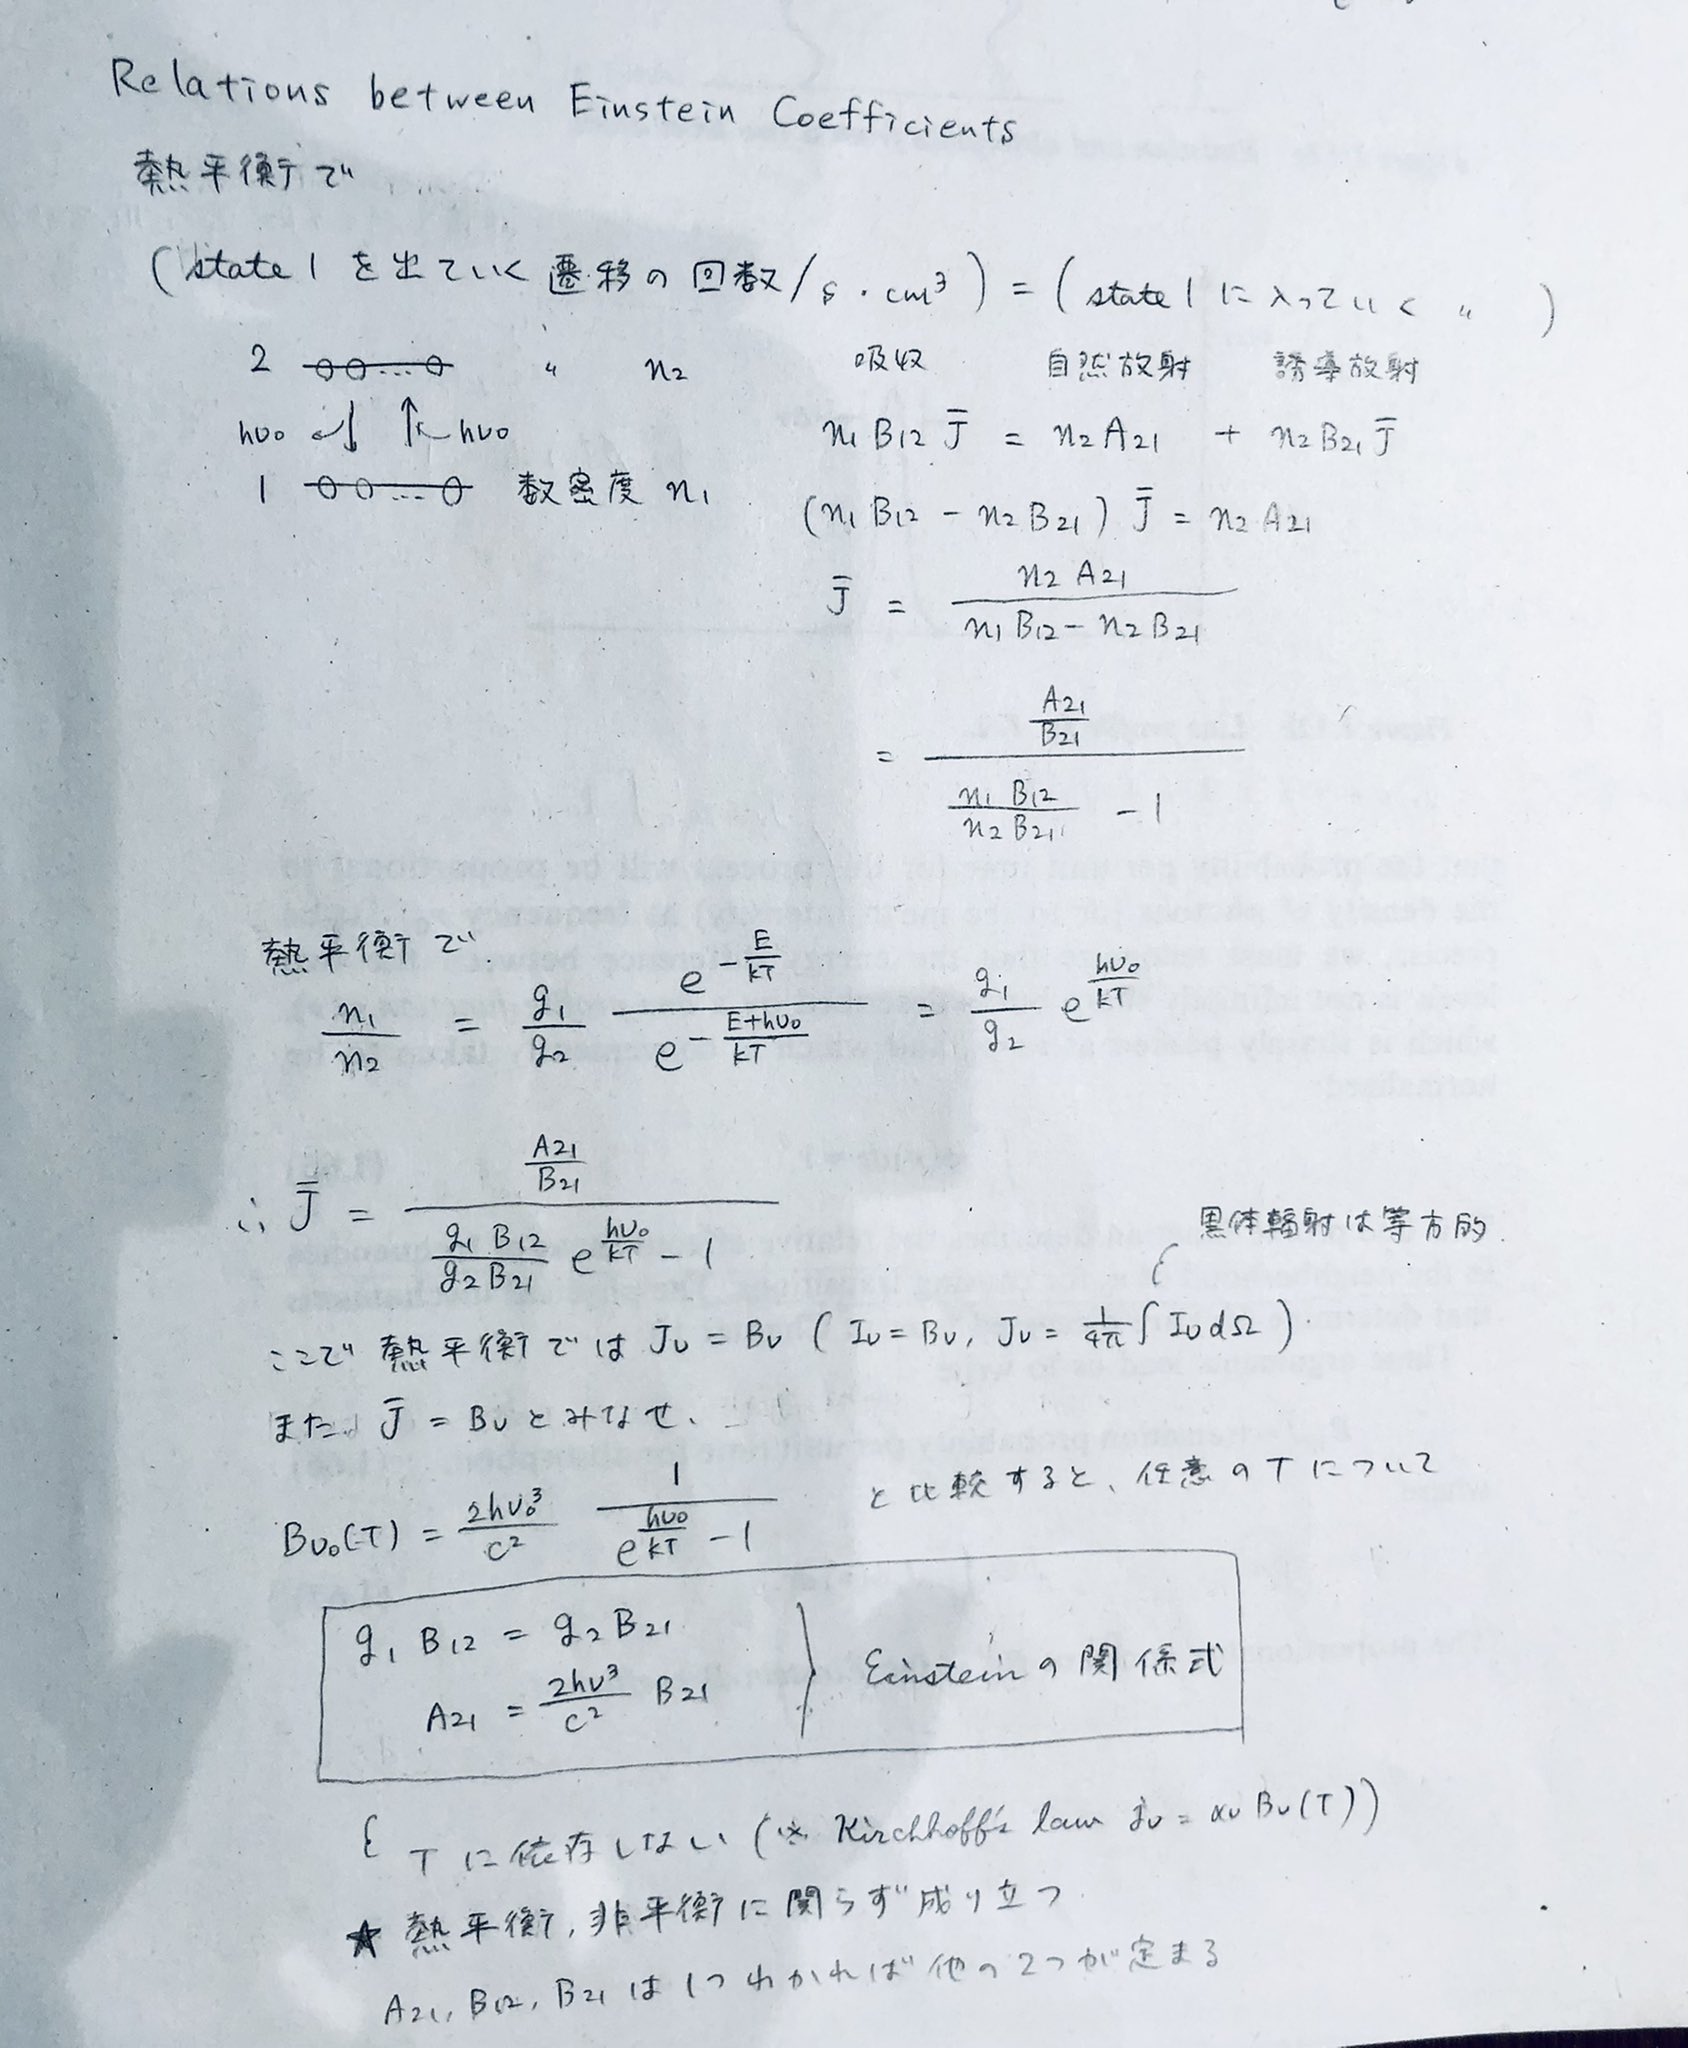 Relations between Einstein Coefficients
熱平衡で
(state 1 を出ていく遷移の回数/s・cm³) = (state 1 に入っていく 〃 )
2 〃 n₂ 吸収 自然放射 誘導放射
hν₀ hν₀ n₁B₁₂J̄ = n₂A₂₁ + n₂B₂₁J̄
1 数密度 n₁
(n₁B₁₂ - n₂B₂₁) J̄ = n₂A₂₁
J̄ = \frac{n₂A₂₁}{n₁B₁₂ - n₂B₂₁}
= \frac{\frac{A₂₁}{B₂₁}}{\frac{n₁B₁₂}{n₂B₂₁} - 1}
熱平衡で
\frac{n₁}{n₂} = \frac{g₁}{g₂} \frac{e^{-\frac{E}{kT}}}{e^{-\frac{E+hν₀}{kT}}} = \frac{g₁}{g₂} e^{\frac{hν₀}{kT}}
∴ J̄ = \frac{\frac{A₂₁}{B₂₁}}{\frac{g₁B₁₂}{g₂B₂₁} e^{\frac{hν₀}{kT}} - 1}
黒体輻射は等方的.
ここで熱平衡では Jν = Bν ( Iν = Bν, Jν = \frac{1}{4π}∫IνdΩ ).
また J̄ = Bν とみなせ、
Bν₀(T) = \frac{2hν₀³}{c²} \frac{1}{e^{\frac{hν₀}{kT}} - 1} と比較すると、任意のTについて
g₁B₁₂ = g₂B₂₁
A₂₁ = \frac{2hν³}{c²} B₂₁
Einsteinの関係式
Tに依存しない (※ Kirchhoff's law jν = αν Bν(T))
★ 熱平衡, 非平衡に関らず成り立つ.
A₂₁, B₁₂, B₂₁ は1つわかれば他の2つが定まる